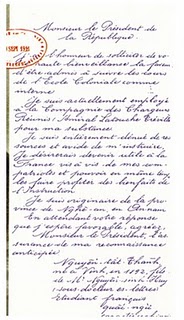 Monsieur le Président de
la République.
l'honneur de solliciter de vo-
haute bienveillance la faveur
d'être admis à suivre les cours
de l'Ecole Coloniale comme
interne
Je suis actuellement employé
à la Compagnie des Chargeurs
Réunis, Amiral Latouche-Tréville
pour ma subsistance
Je suis entièrement dénué de res-
sources et avide de m'instruire.
Je désirerais devenir utile à la
France vis à vis de mes com-
patriotes et pouvoir en même temps
les faire profiter des bienfaits
de l'Instruction
Je suis originaire de la pro-
vince de Nghê-an, en Annam
En attendant votre réponse
que j'espère favorable, agréez,
Monsieur le Président, l'as-
surance de ma reconnaissance
anticipée
Nguyên tât Thanh,
né à Vinh, en 1892, fils
de Mr Nguyên sinh Huy
sous docteur ès-lettres
Etudiant français
quôc-ngu